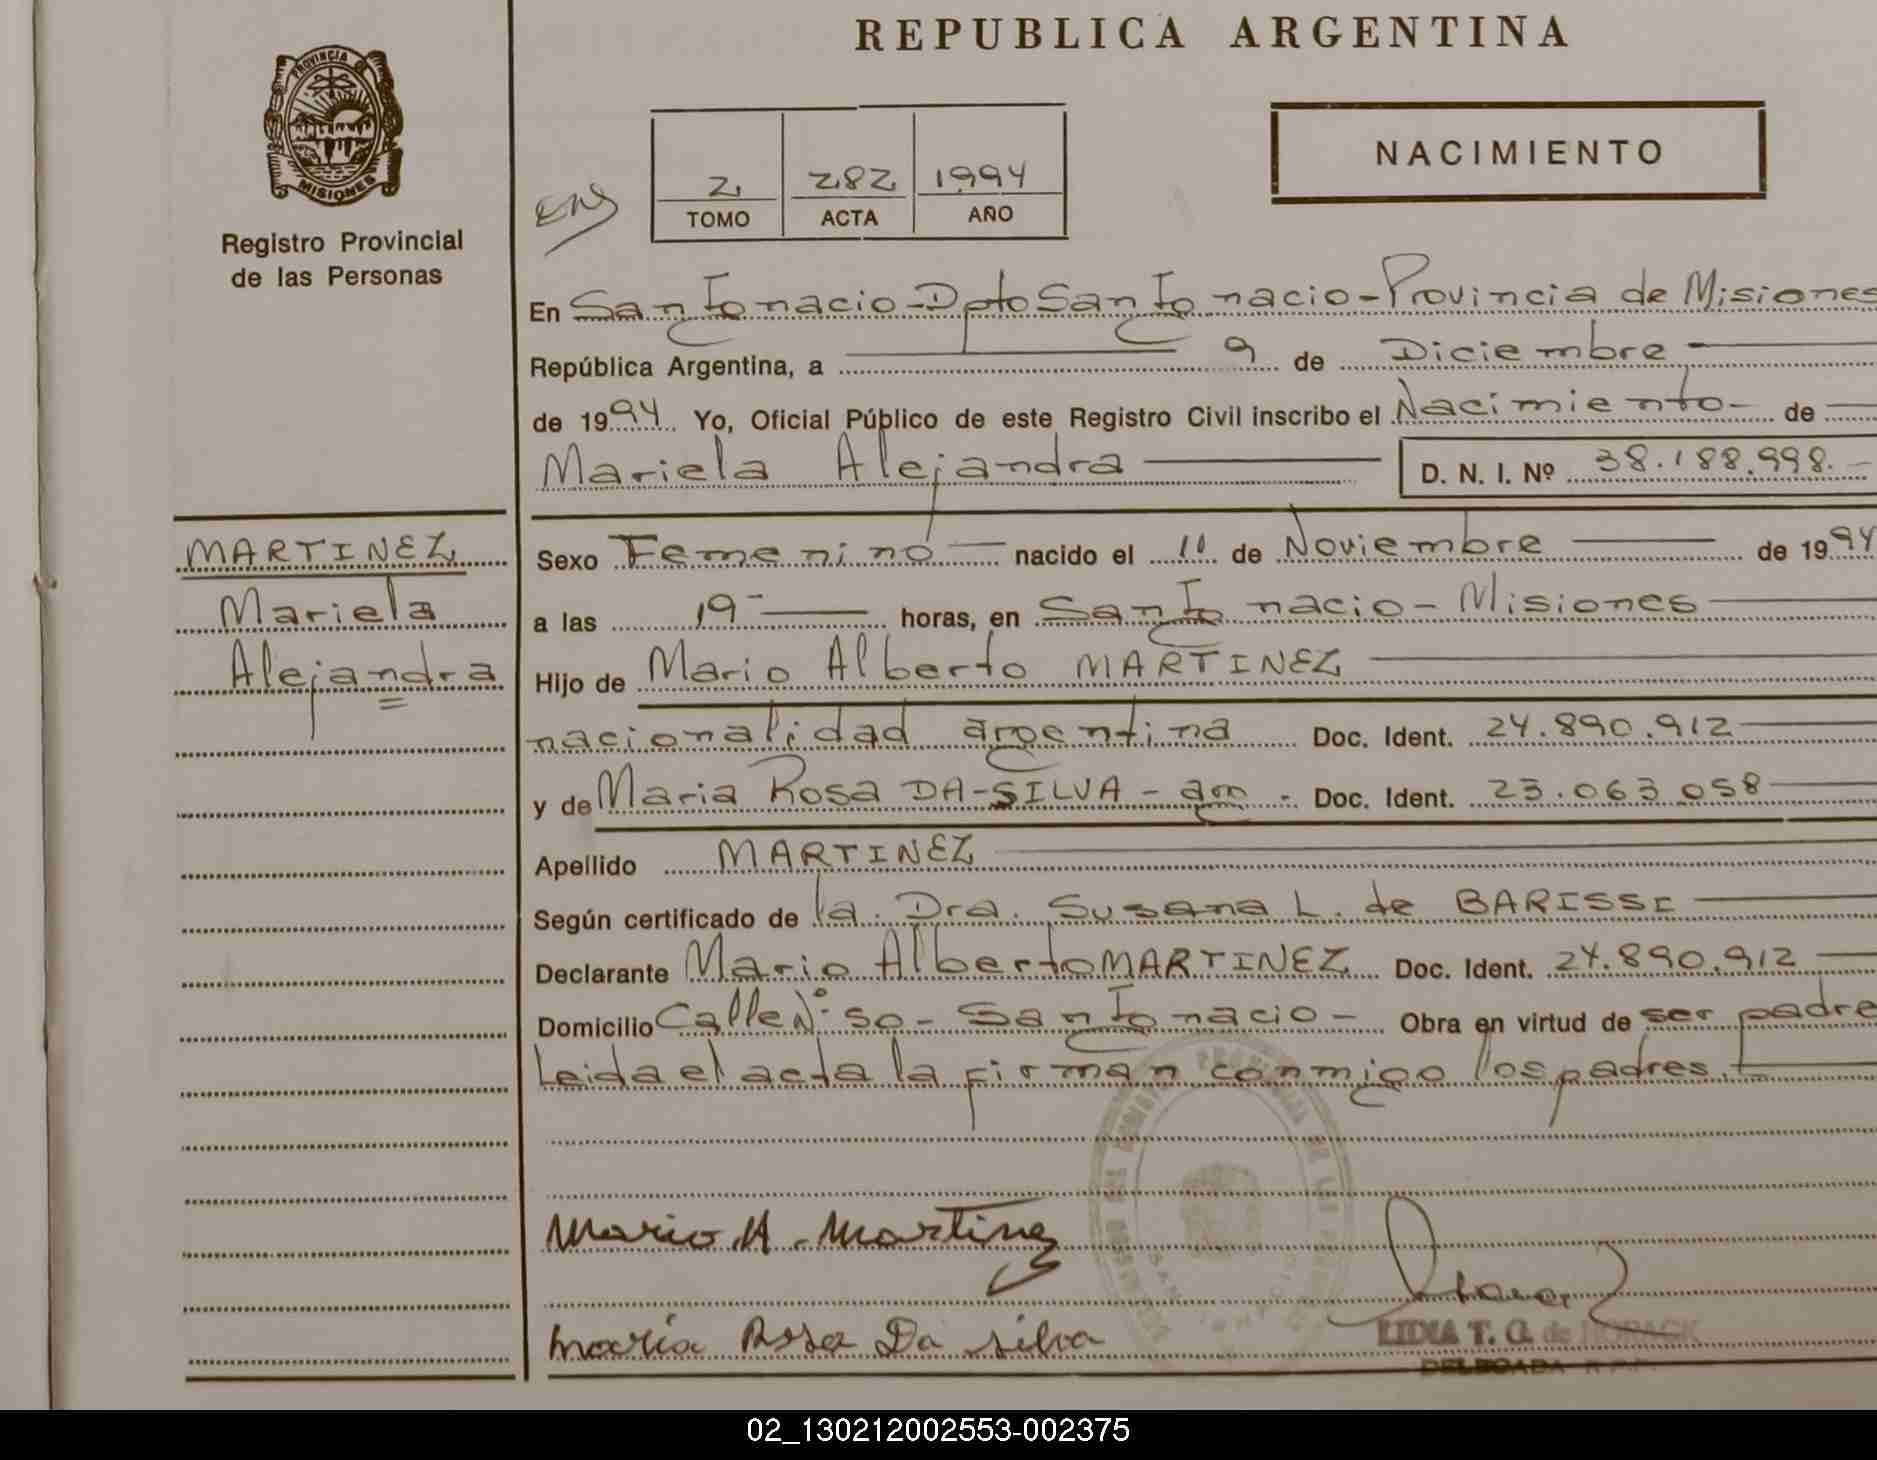 REPUBLICA ARGENTINA
PROVINCIA DE
MISIONES
Registro Provincial
de las Personas
2 282 1994
TOMO ACTA AÑO
NACIMIENTO
En San Ignacio - Dpto San Ignacio - Provincia de Misiones
República Argentina, a 9 de Diciembre
de 1994 Yo, Oficial Público de este Registro Civil inscribo el Nacimiento - de
Mariela Alejandra D. N. I. Nº 38.188.998.-
MARTINEZ
Mariela
Alejandra
Sexo Femenino nacido el 11 de Noviembre de 1994
a las 19 horas, en San Ignacio - Misiones
Hijo de Mario Alberto MARTINEZ
nacionalidad argentina Doc. Ident. 24.890.912
y de Maria Rosa DA-SILVA - arg - Doc. Ident. 23.063.058
Apellido MARTINEZ
Según certificado de la Dra. Susana L. de BARISSI
Declarante Mario Alberto MARTINEZ Doc. Ident. 24.890.912
Domicilio Calle Nº 50 - San Ignacio - Obra en virtud de ser padre
Leida el acta la firman conmigo los padres.
Mario A. Martinez
María Rosa Da silva
LIDIA T. G. de
DELEGADA R.P.P.
02_130212002553-002375